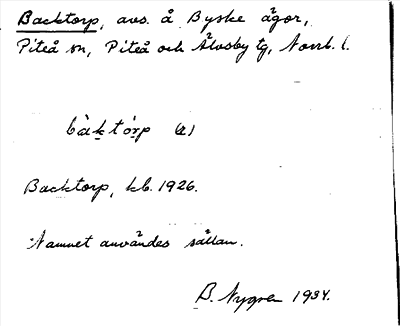 Backtorp, avs. å Byske ägor,
Piteå sn, Piteå och Älvsby tg, Norrb. l.
bàktórp (a)
Backtorp, kb. 1926.
Namnet användes sällan.
B. Nygren 1934.